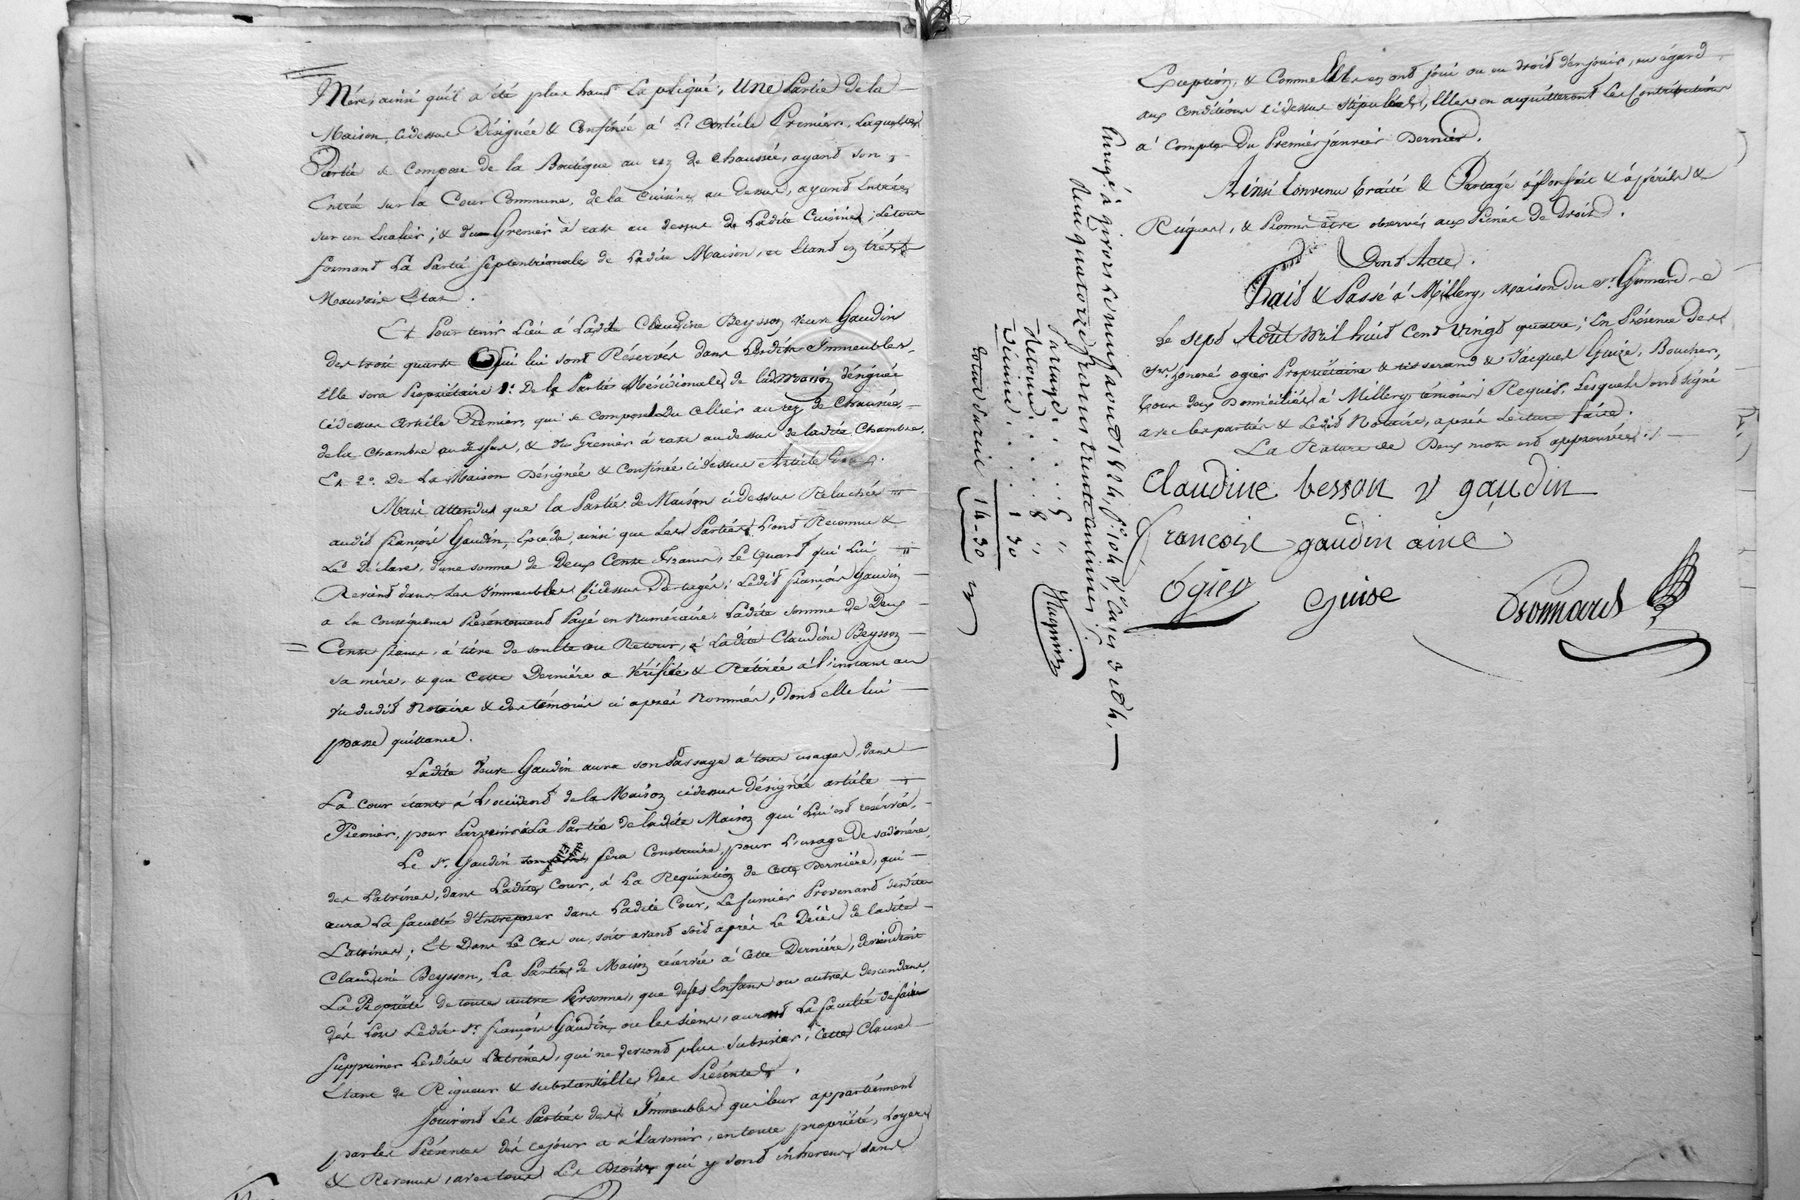 Mère, ainsi qu'il a été plus haut Expliqué, Une Partie de la
Maison cidessus Désignée & Confinée à l'Article Premier, Laquelle
Partie se Compose de la Boutique au rez de chaussée, ayant son
Entrée sur la Cour Commune, de la Cuisine au dessus, ayant Entrée
sur un Escalier; & du Grenier à rats au dessus de Ladite Cuisine; Le tout
formant La Partie Septentrionale de Ladite Maison, et Etant en très
Mauvais Etat.
Et Pour tenir Lieu à Ladite Claudine Beysson veuve Gaudin
des trois quarts Qui lui sont Réservés dans Lesdits Immeubles,
Elle sera Propriétaire 1º. De la Partie Méridionale de ladite Maison désignée
cidessus Article Premier, qui se compose Du cellier au rez de Chaussée,
de la Chambre au dessus, & du Grenier à rats au dessus de ladite Chambre,
Et 2º. De La Maison Désignée & Confinée cidessus Article
Mais attendu que la Partie de Maison cidessus Relachée
audit françois Gaudin, Excède, ainsi que Les Parties L'ont Reconnu &
Le Déclare, d'une somme de Deux Cents Francs, Le Quart qui Lui
Revient dans Les Immeubles Cidessus Partagés; Ledit françois Gaudin
a En Conséquence Présentement Payé en Numéraire Ladite somme de Deux
Cents francs, à titre de soulte ou Retour, à Ladite Claudine Beysson
sa mère, & que Cette Dernière a Vérifiée & Retirée à l'instant au
Vu dudit Notaire & des témoins ci après Nommés, Dont elle lui
passe quittance.
Ladite Veuve Gaudin aura son Passage à tous usages, dans
La Cour étant à L'occident de la Maison cidessus désignée article
Premier, pour Parvenir à La Partie de ladite Maison qui Lui est réservée.
Le Sr. Gaudin fera Construire, pour L'usage De sadite mère,
des Latrines, dans Ladite Cour, à La Réquisition de Cette Dernière, qui
aura La faculté d'Entreposer dans Ladite Cour, Le fumier Provenant desdites
Latrines; Et Dans Le Cas ou, soit avant soit après Le Décès de ladite
Claudine Beysson, La Partie de Maison réservée à Cette Dernière, deviendroit
La Propriété de toute autre Personne, que de ses Enfans ou autres descendans,
dès Lors Ledit Sr. françois Gaudin, ou les siens, auront La faculté de faire
supprimer Lesdites Latrines, qui ne devront plus subsister; Cette Clause
Etant de Rigueur & substantielle des Présentes.
Jouiront Les Parties des Immeubles qui leur appartiennent
par les Présentes dès ce jour à l'avenir, en toute propriété, Loyers
& Revenus, avec tous Les Droits qui y sont inhérens, sans
Exception, & Comme Elles en ont joui ou eu droit d'en jouir, eu égard
aux Conditions cidessus stipulées, Elles en acquitteront Les Contributions
à Compter Du Premier janvier Dernier.
Ainsi Convenu traité & Partagé à forfait & à périls &
Risques, & Promis être observé, aux Peines de Droit.
Dont Acte.
Fait & Passé à Millery, Maison du Sr.
Le sept Août mil huit Cent Vingt quatre; En Présence des
Srs. honoré ogier Propriétaire & tisserand & Jacques Guize, Boucher,
tous deux Domiciliés à Millery, témoins Requis, Lesquels ont signé
avec les parties & Ledit Notaire, après Lecture faite.
La Rature de Deux mots est approuvée.
claudine besson v gaudin
francoise gaudin ainé
Ogier
Guise
Enregé à Givors Le neuf août 1824, fo. 104 Vo. Cases 3 et 4,
Reçu quatorze francs trente centimes.
Partage . . . 5 "
Retour . . . 8 "
Dixième . . . 1 30
total du reçu 14-30